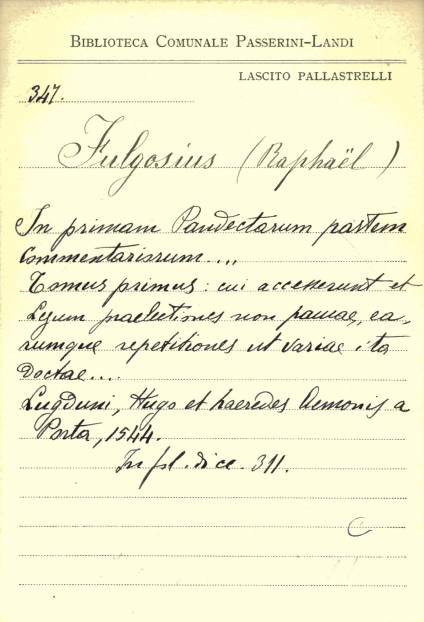 BIBLIOTECA COMUNALE PASSERINI-LANDI
LASCITO PALLASTRELLI
347.
Fulgosius (Raphaël)
In primam Pandectarum partem
Commentariorum....
Tomus primus: cui accesserunt et
Legum praelectiones non paucae, ea-
rumque repetitiones ut variae ita
Doctae....
Lugduni, Hugo et haeredes Aemonis a
Porta, 1544.
In fol. di cc. 311.
C